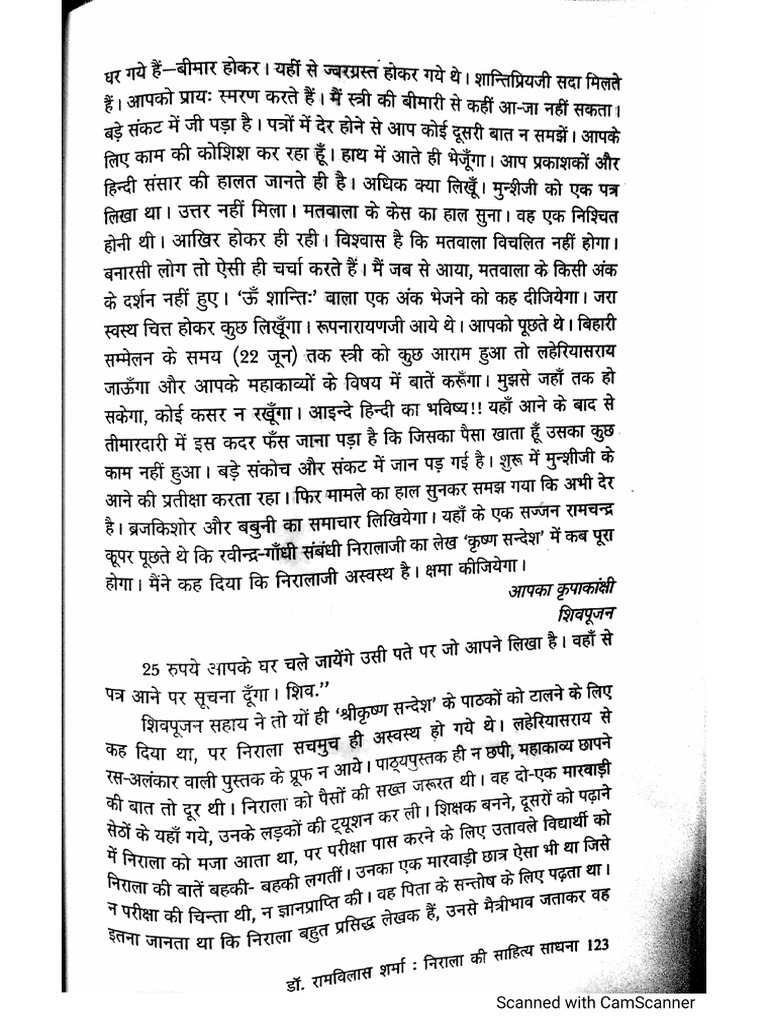 घर गये हैं—बीमार होकर। यहीं से ज्वरग्रस्त होकर गये थे। शान्तिप्रियजी सदा मिलते
हैं। आपको प्रायः स्मरण करते हैं। मैं स्त्री की बीमारी से कहीं आ-जा नहीं सकता।
बड़े संकट में जी पड़ा है। पत्रों में देर होने से आप कोई दूसरी बात न समझें। आपके
लिए काम की कोशिश कर रहा हूँ। हाथ में आते ही भेजूँगा। आप प्रकाशकों और
हिन्दी संसार की हालत जानते ही है। अधिक क्या लिखूँ। मुन्शीजी को एक पत्र
लिखा था। उत्तर नहीं मिला। मतवाला के केस का हाल सुना। वह एक निश्चित
होनी थी। आखिर होकर ही रही। विश्वास है कि मतवाला विचलित नहीं होगा।
बनारसी लोग तो ऐसी ही चर्चा करते हैं। मैं जब से आया, मतवाला के किसी अंक
के दर्शन नहीं हुए। 'ऊँ शान्तिः' वाला एक अंक भेजने को कह दीजियेगा। जरा
स्वस्थ चित्त होकर कुछ लिखूँगा। रूपनारायणजी आये थे। आपको पूछते थे। बिहारी
सम्मेलन के समय (22 जून) तक स्त्री को कुछ आराम हुआ तो लहेरियासराय
जाऊँगा और आपके महाकाव्यों के विषय में बातें करूँगा। मुझसे जहाँ तक हो
सकेगा, कोई कसर न रखूँगा। आइन्दे हिन्दी का भविष्य!! यहाँ आने के बाद से
तीमारदारी में इस कदर फँस जाना पड़ा है कि जिसका पैसा खाता हूँ उसका कुछ
काम नहीं हुआ। बड़े संकोच और संकट में जान पड़ गई है। शुरू में मुन्शीजी के
आने की प्रतीक्षा करता रहा। फिर मामले का हाल सुनकर समझ गया कि अभी देर
है। ब्रजकिशोर और बबुनी का समाचार लिखियेगा। यहाँ के एक सज्जन रामचन्द्र
कूपर पूछते थे कि रवीन्द्र-गाँधी संबंधी निरालाजी का लेख 'कृष्ण सन्देश' में कब पूरा
होगा। मैंने कह दिया कि निरालाजी अस्वस्थ है। क्षमा कीजियेगा।
आपका कृपाकांक्षी
शिवपूजन
25 रुपये आपके घर चले जायेंगे उसी पते पर जो आपने लिखा है। वहाँ से
पत्र आने पर सूचना दूँगा। शिव."
शिवपूजन सहाय ने तो यों ही 'श्रीकृष्ण सन्देश' के पाठकों को टालने के लिए
कह दिया था, पर निराला सचमुच ही अस्वस्थ हो गये थे। लहेरियासराय से
रस-अलंकार वाली पुस्तक के प्रूफ न आये। पाठ्यपुस्तक ही न छपी, महाकाव्य छापने
की बात तो दूर थी। निराला को पैसों की सख्त जरूरत थी। वह दो-एक मारवाड़ी
सेठों के यहाँ गये, उनके लड़कों की ट्यूशन कर ली। शिक्षक बनने, दूसरों को पढ़ाने
में निराला को मजा आता था, पर परीक्षा पास करने के लिए उतावले विद्यार्थी को
निराला की बातें बहकी- बहकी लगतीं। उनका एक मारवाड़ी छात्र ऐसा भी था जिसे
न परीक्षा की चिन्ता थी, न ज्ञानप्राप्ति की। वह पिता के सन्तोष के लिए पढ़ता था।
इतना जानता था कि निराला बहुत प्रसिद्ध लेखक हैं, उनसे मैत्रीभाव जताकर वह
डॉ. रामविलास शर्मा : निराला की साहित्य साधना 123
Scanned with CamScanner